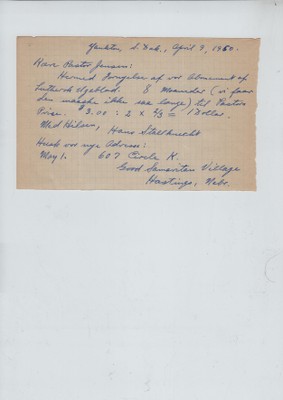 Yankton, S. Dak., April 9, 1960.
Kære Pastor Jensen:
Hermed Fornyelse af vor Abonnent af
Luthersk Ugeblad. 8 Maaneder (vi faar
den maaske ikke saa længe) til Pastors
Priser. $3.00 : 2 x 2/3 = 1 Dollar.
Med Hilsen, Hans Stallknecht
Husk vor nye Adresse:
May 1. 607 Circle K.
Good Samaritan Village
Hastings, Nebr.